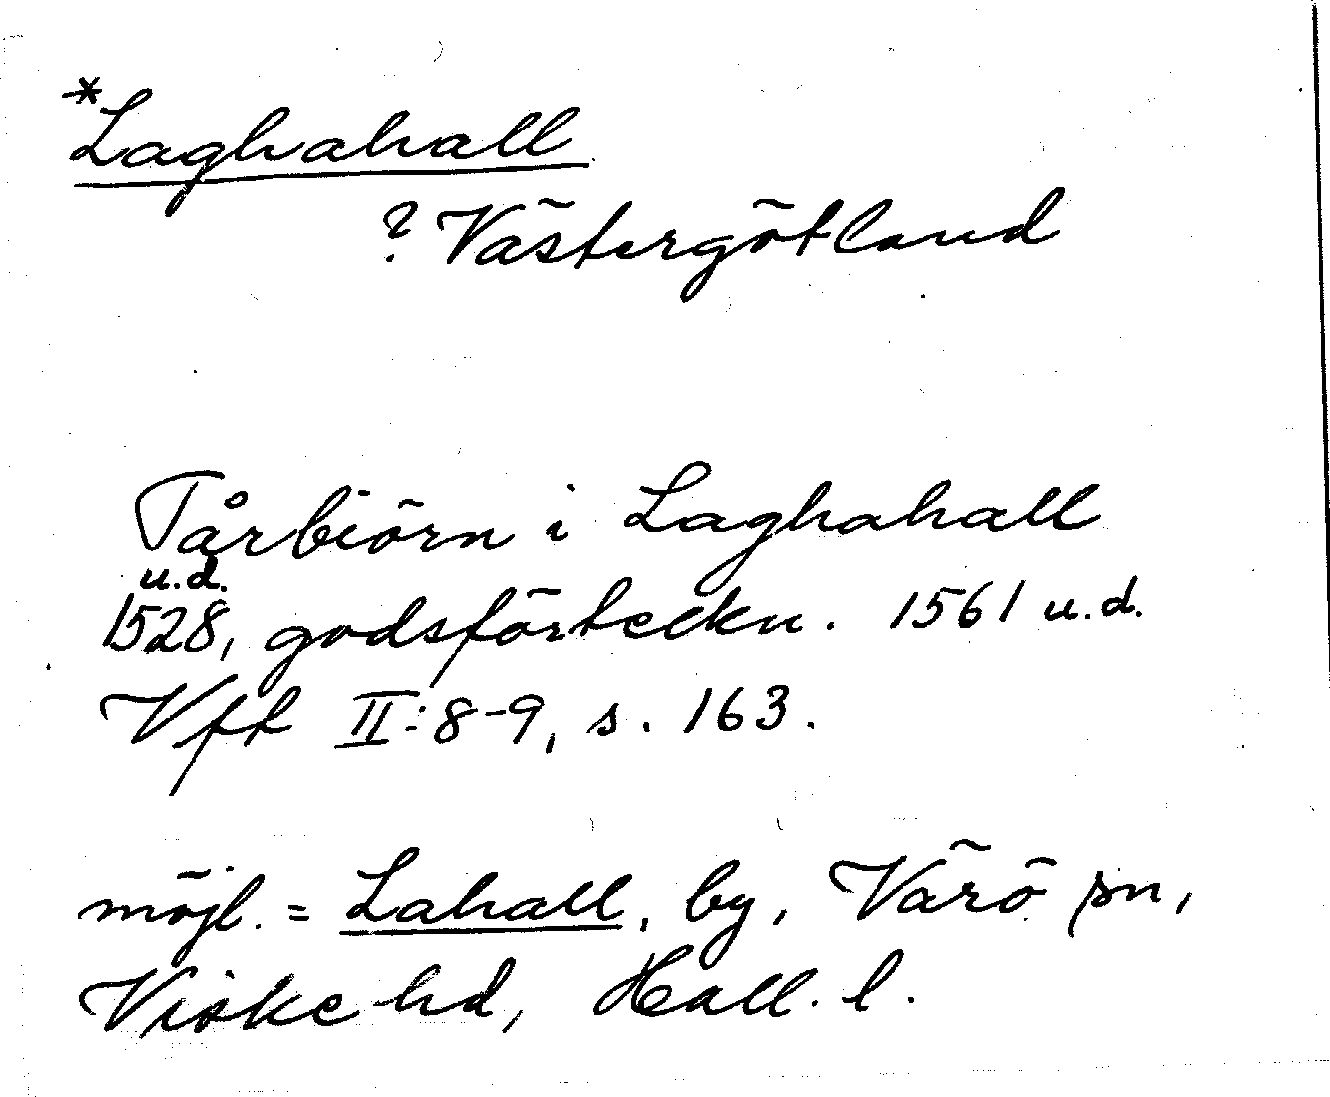 *Laghahall
? Västergötland
Tårbiörn i Laghahall
u.d.
1528, godsförteckn. 1561 u.d.
Vft II:8-9, s. 163.
möjl. = Lahall, by, Värö sn,
Viske hd, Hall. l.